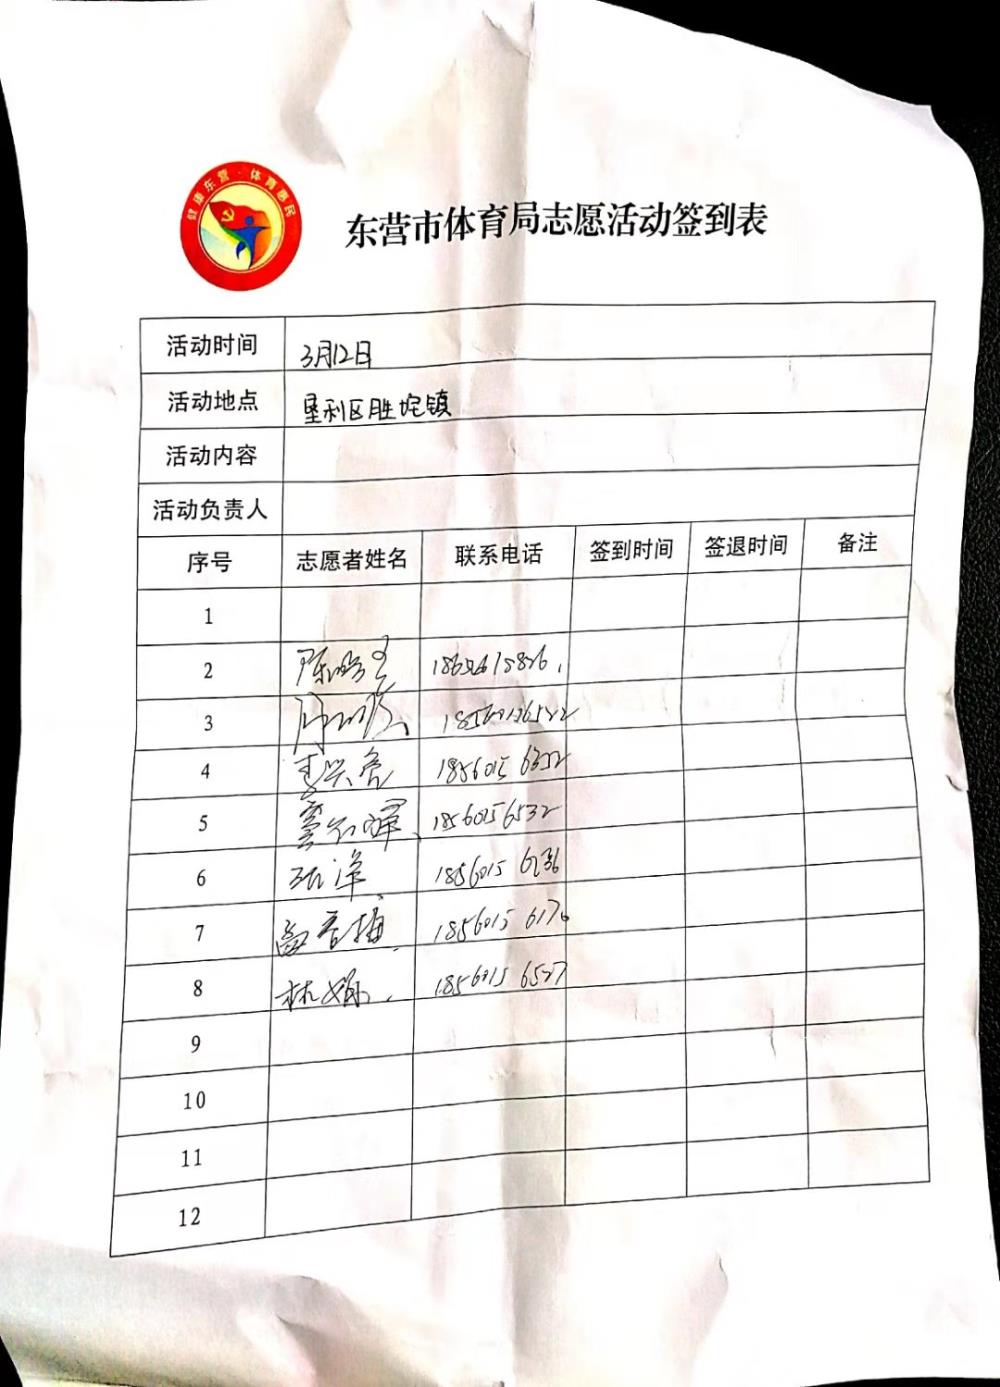 健康东营·体育惠民
东营市体育局志愿活动签到表
活动时间 3月12日
活动地点 垦利区胜坨镇
活动内容
活动负责人
序号 志愿者姓名 联系电话 签到时间 签退时间 备注
1
2
3
4 18560156352
5 18560156532
6 张洋 18560156236
7 高香梅 18560156176
8 林娜 18560156527
9
10
11
12